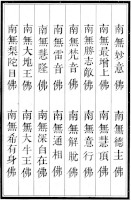 南無妙意佛 南無德主佛
南無增上佛 南無慧頂佛
南無勝敵佛 南無意行佛
南無梵音佛 南無解脫佛
南無雷音佛 南無通相佛
南無慧隆佛 南無深自在佛
南無大地王佛 南無大牛王佛
南無梨陀目佛 南無希有身佛